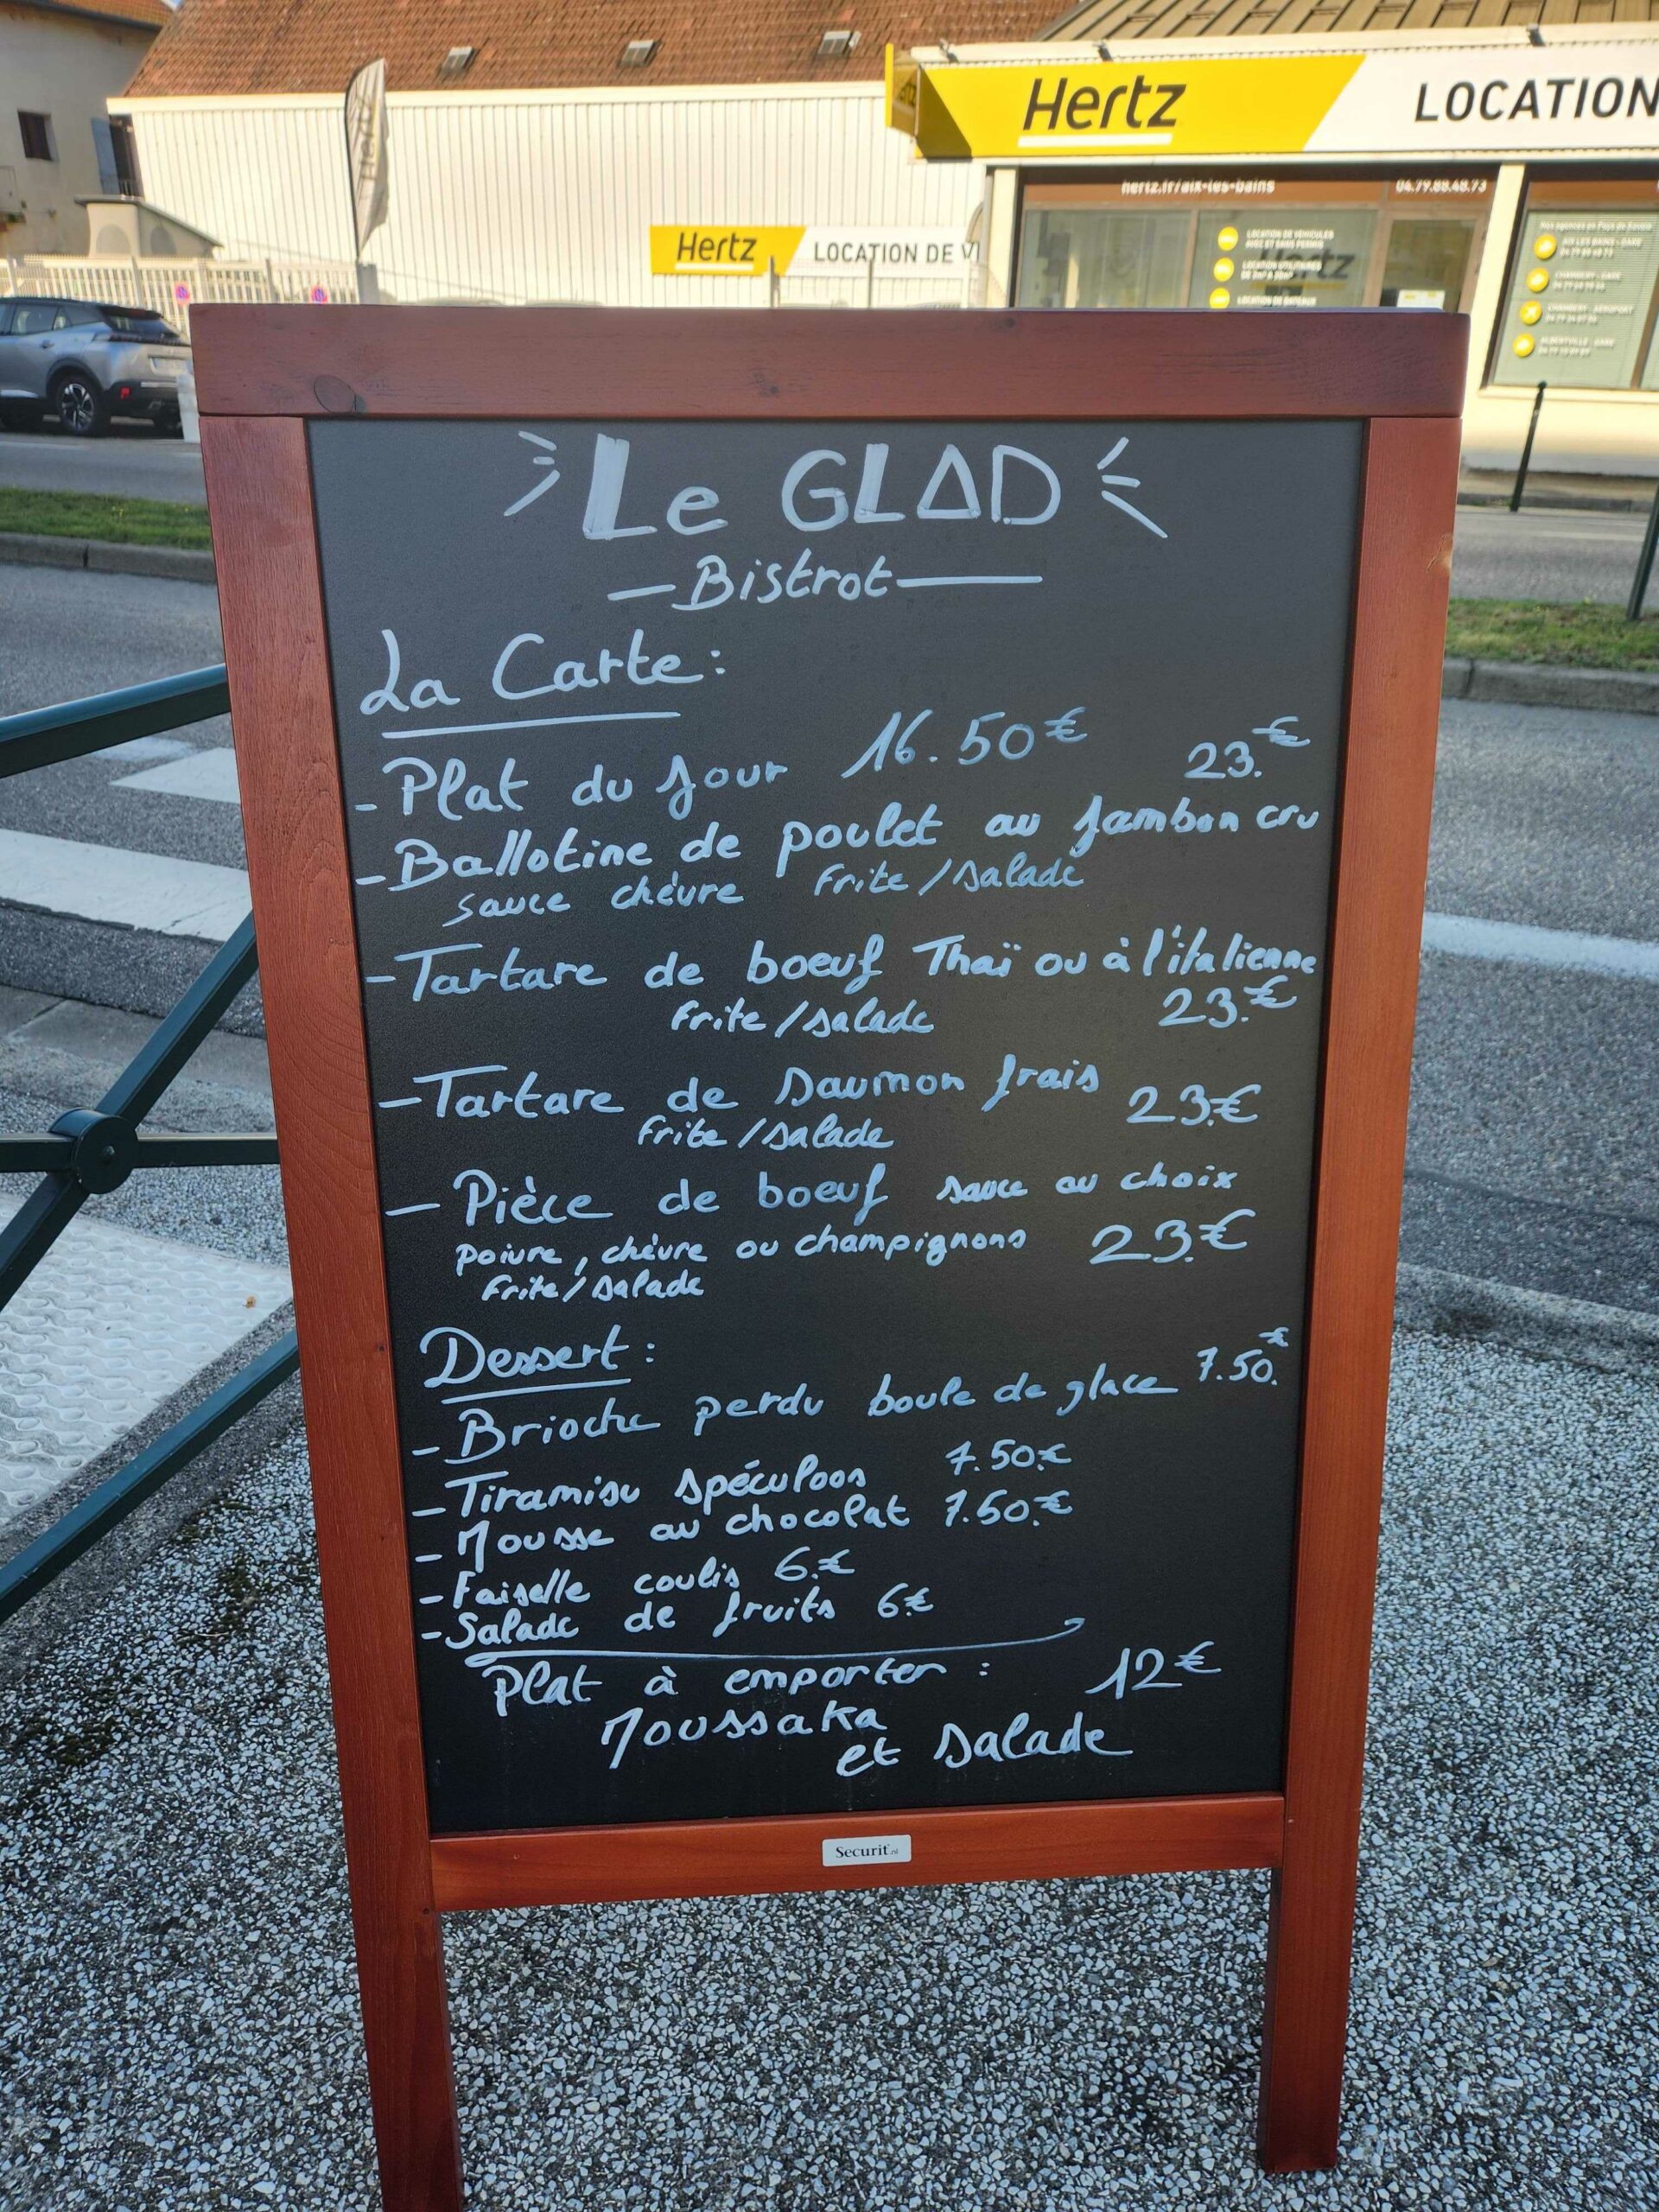 Hertz LOCATION
hertz.fr/aix-les-bains 04.79.88.48.73
Hertz LOCATION DE V
LOCATION DE VEHICULES
AVEC ET SANS PERMIS
LOCATION UTILITAIRES
LOCATION DE BATEAUX
Nos agences en Pays de Savoie
AIX LES BAINS - GARE
CHAMBERY - GARE
CHAMBERY - AEROPORT
ALBERTVILLE - GARE
Le GLAD
Bistrot
La Carte:
- Plat du Jour 16.50€
23.€
- Ballotine de poulet au Jambon cru
sauce chèvre Frite/Salade
- Tartare de boeuf Thaï ou à l'italienne
Frite/salade 23.€
- Tartare de Saumon frais 23.€
Frite/salade
- Pièce de boeuf sauce au choix
poivre, chèvre ou champignons 23.€
Frite/Salade
Dessert:
- Brioche perdu boule de glace 7.50.€
- Tiramisu spéculoos 7.50.€
- Mousse au chocolat 7.50.€
- Faiselle coulis 6.€
- Salade de fruits 6.€
Plat à emporter : 12€
Moussaka
et Salade
Securit.nl